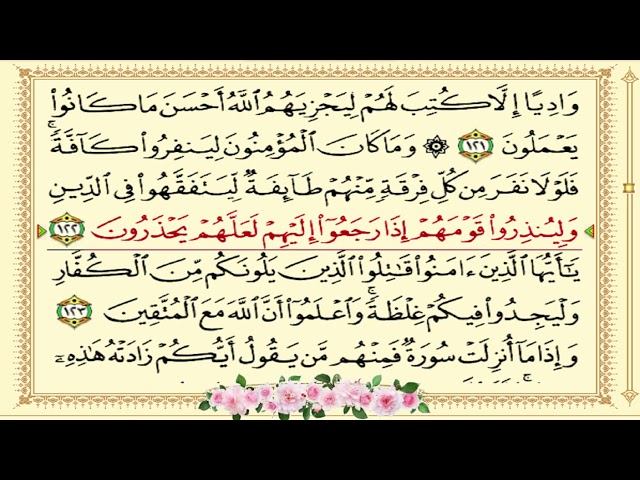 وَادِيًا إِلَّا كُتِبَ لَهُمْ لِيَجْزِيَهُمُ اللَّهُ أَحْسَنَ مَا كَانُوا۟
يَعْمَلُونَ ١٢١ ۞ وَمَا كَانَ الْمُؤْمِنُونَ لِيَنفِرُوا۟ كَآفَّةً ۚ
فَلَوْلَا نَفَرَ مِن كُلِّ فِرْقَةٍ مِّنْهُمْ طَآئِفَةٌ لِّيَتَفَقَّهُوا۟ فِي الدِّينِ
وَلِيُنذِرُوا۟ قَوْمَهُمْ إِذَا رَجَعُوٓا۟ إِلَيْهِمْ لَعَلَّهُمْ يَحْذَرُونَ ١٢٢
يَـٰٓأَيُّهَا الَّذِينَ ءَامَنُوا۟ قَـٰتِلُوا۟ الَّذِينَ يَلُونَكُم مِّنَ الْكُفَّارِ
وَلْيَجِدُوا۟ فِيكُمْ غِلْظَةً ۚ وَاعْلَمُوٓا۟ أَنَّ اللَّهَ مَعَ الْمُتَّقِينَ ١٢٣
وَإِذَا مَآ أُنزِلَتْ سُورَةٌ فَمِنْهُم مَّن يَقُولُ أَيُّكُمْ زَادَتْهُ هَـٰذِهِۦٓ